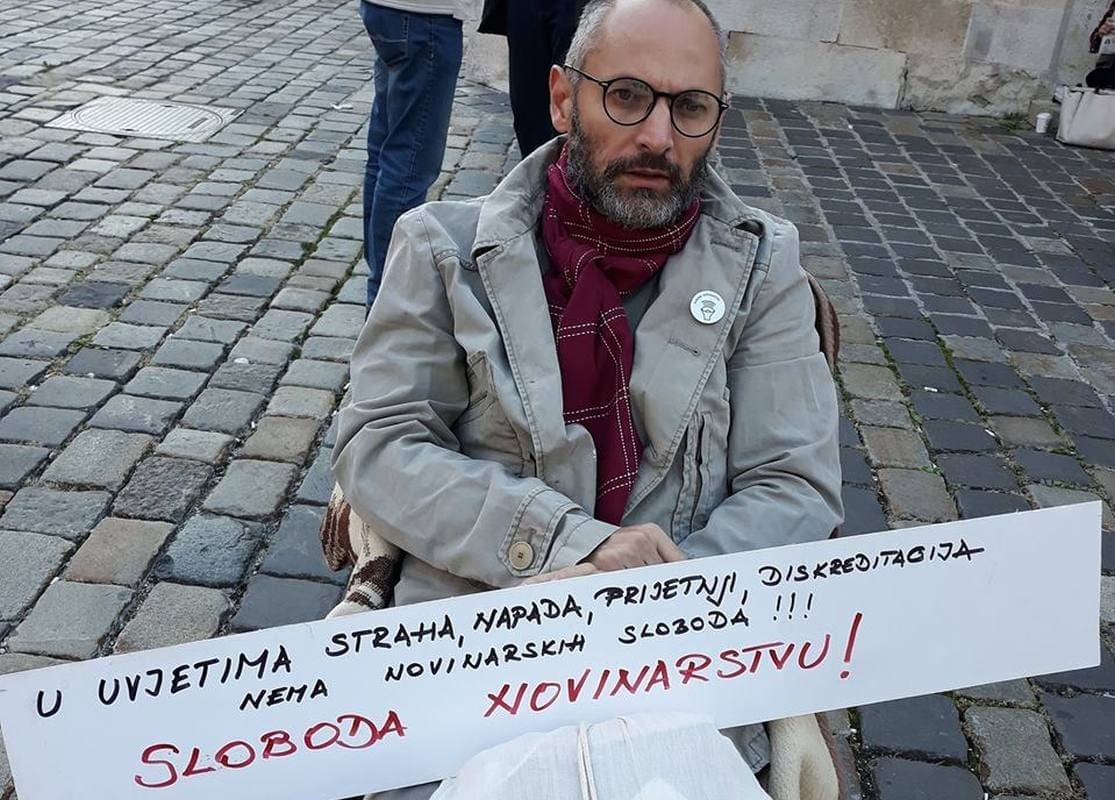 U UVJETIMA STRAHA, NAPADA, PRIJETNJI, DISKREDITACIJA
NEMA NOVINARSKIH SLOBODA !!!
SLOBODA NOVINARSTVU!